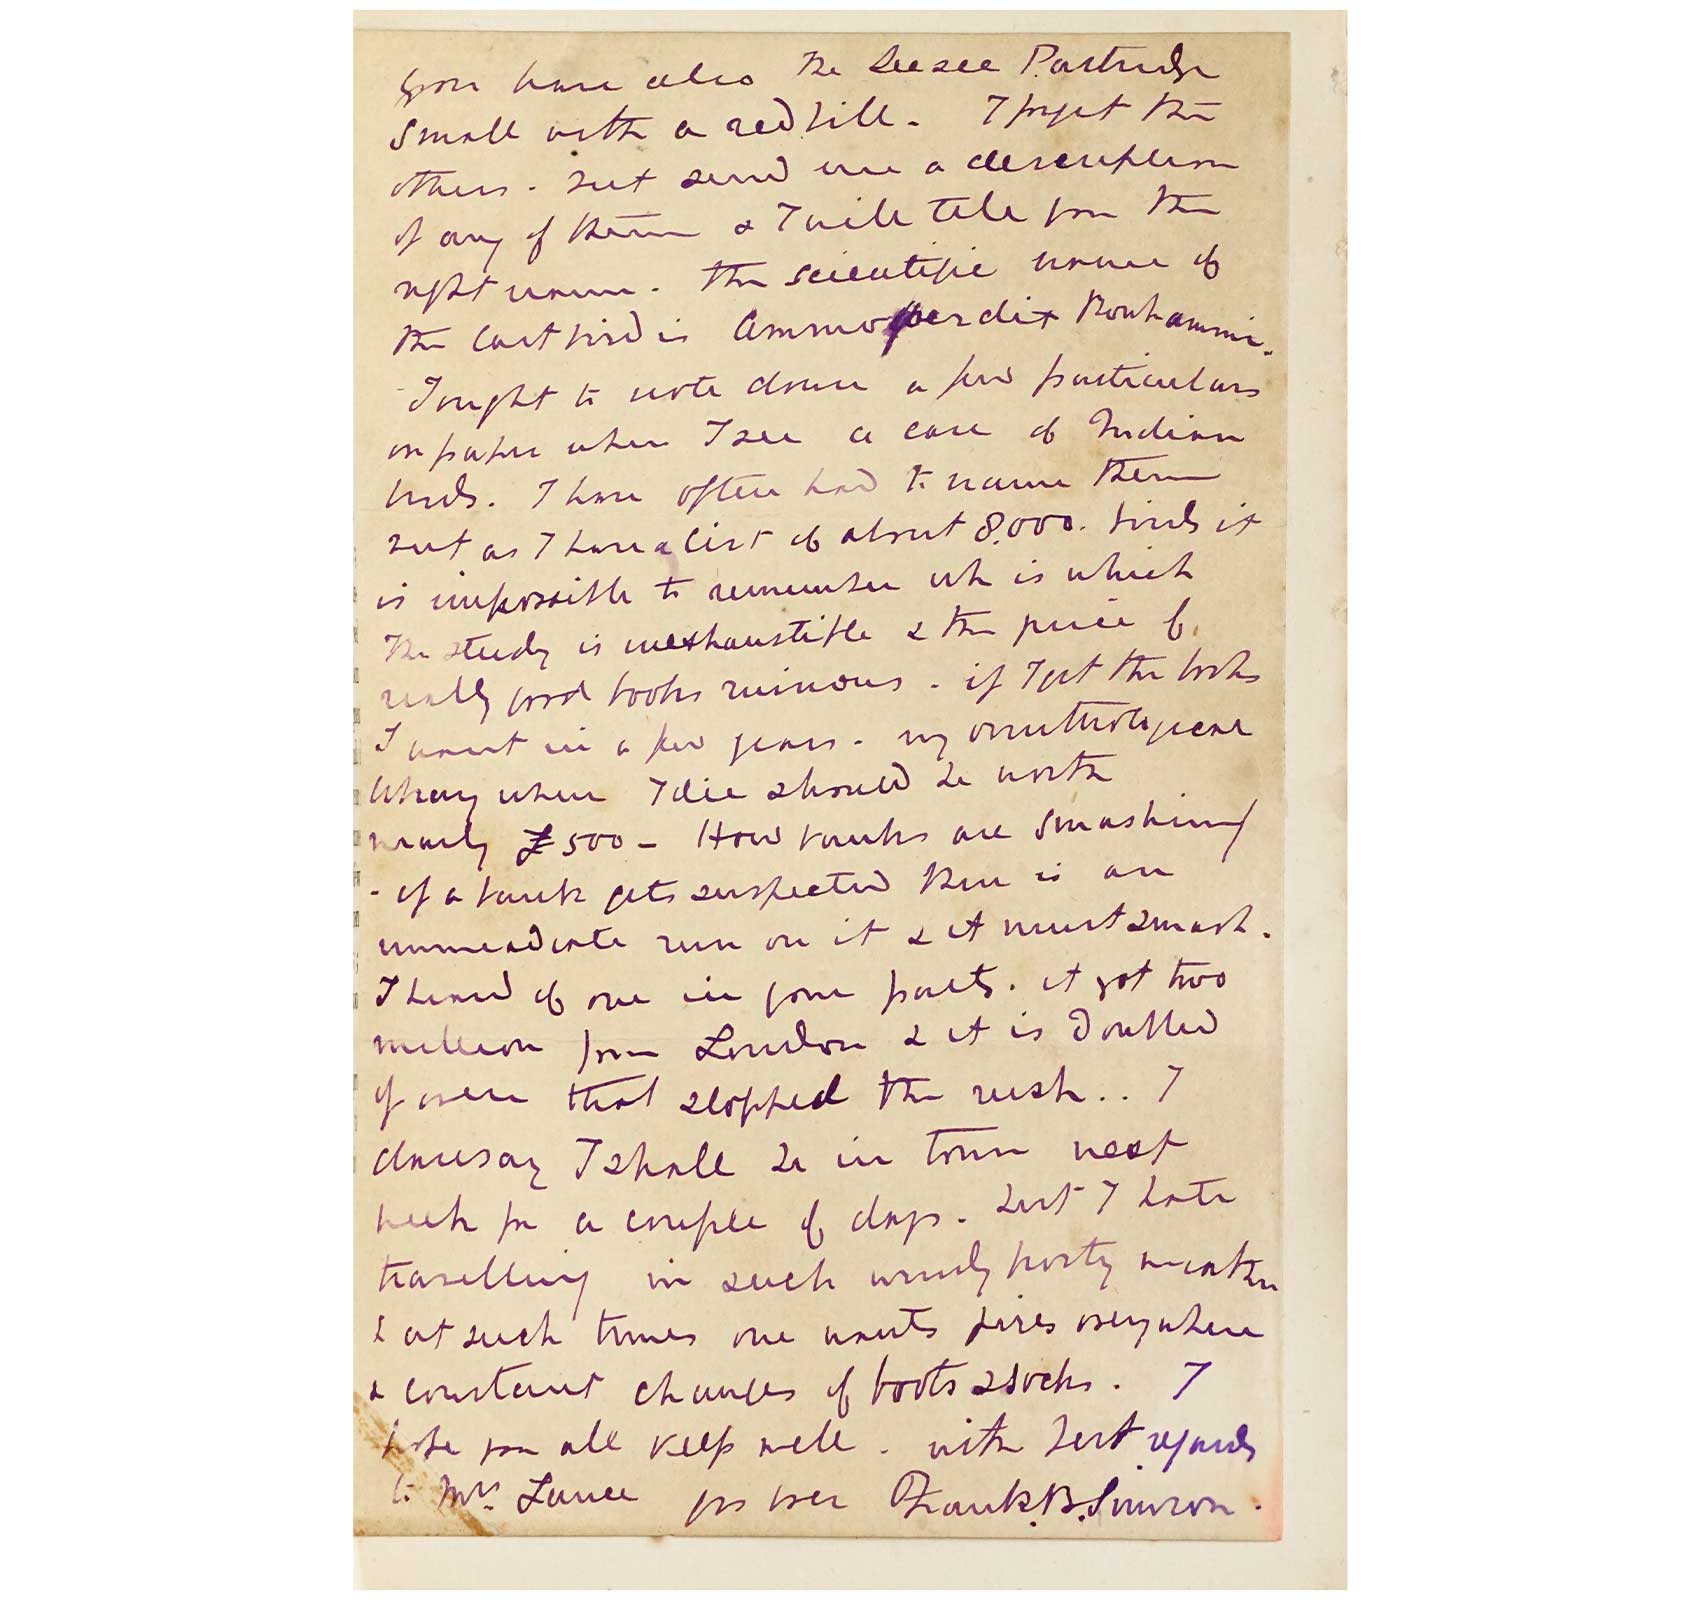 you have also the Seesee Partridge
small with a red bill. I forget the
others. but send me a description
of any of them & I will tell you the
right name. The scientific name of
the last bird is Ammoperdix Bonhammi.
I ought to note down a few particulars
on paper when I see a case of Indian
birds. I have often had to name them
but as I have a list of about 8,000. birds it
is impossible to remember wh is which
The study is inexhaustible & the price of
really good books ruinous. if I get the books
I want in a few years. my ornithological
library when I die should be worth
nearly £500 - How banks are smashing
- if a bank gets suspected there is an
immeadiate run on it & it must smash.
I heard of one in your parts. it got two
million from London & it is doubted
if even that stopped the rush.. I
daresay I shall be in town next
week for a couple of days. but I hate
travelling in such windy frosty weather
& at such times one wants fires everywhere
& constant changes of boots & socks. I
hope you all keep well. with best regards
to Mrs. Lance yrs ever Frank. B. Simson.